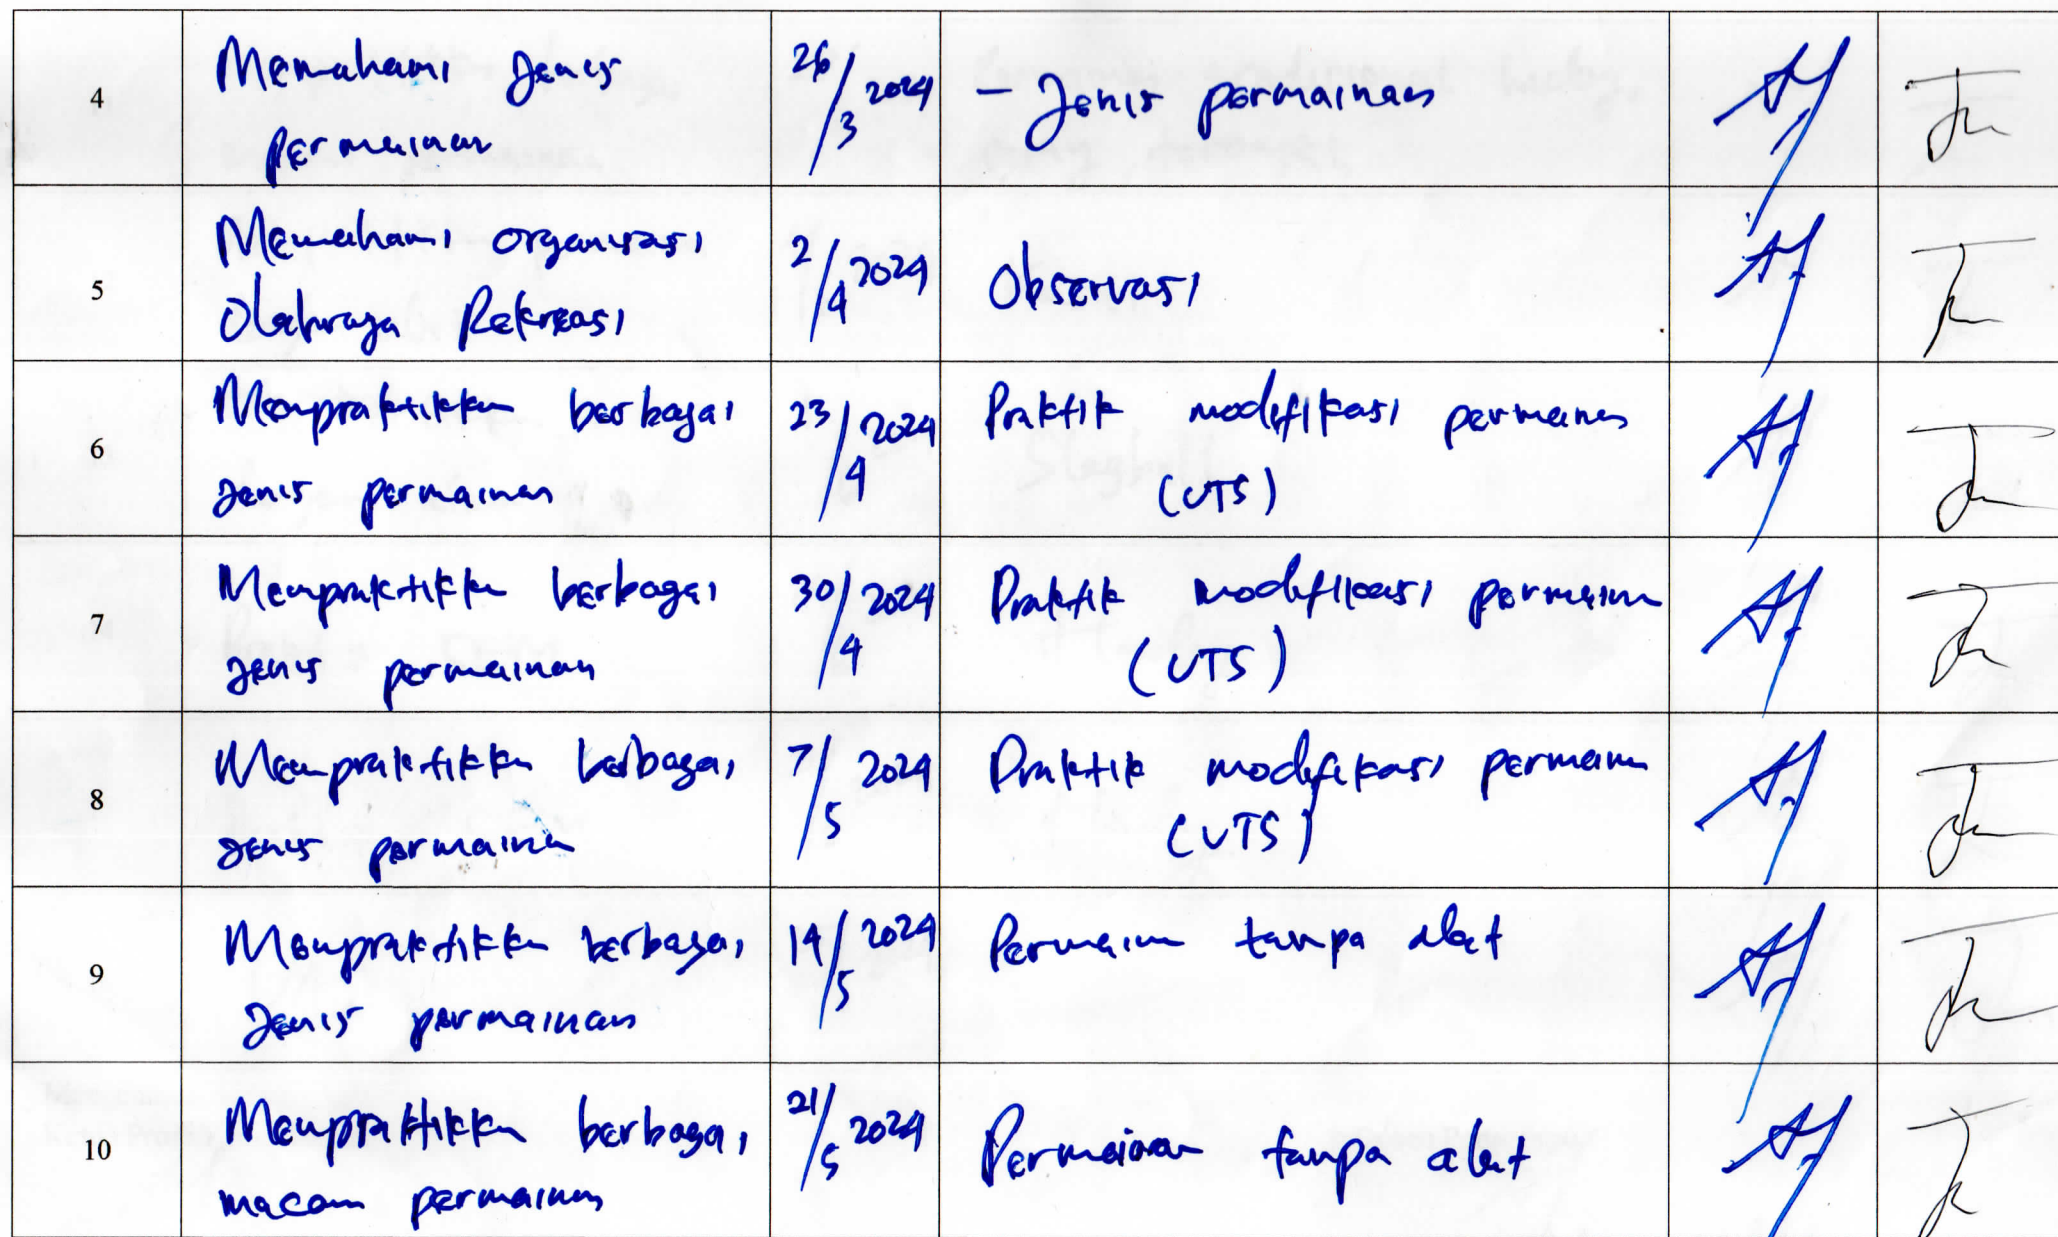 4
Memahami Jenis
permainan
26/3 2024
- Jenis permainan
5
Memahami organisasi
Olahraga Rekreasi
2/4 2024
Observasi
6
Mempraktikkan berbagai
Jenis permainan
23/4 2024
Praktik modifikasi permainan
(UTS)
7
Mempraktikkan berbagai
Jenis permainan
30/4 2024
Praktik modifikasi permainan
(UTS)
8
Mempraktikkan berbagai
Jenis permainan
7/5 2024
Praktik modifikasi permainan
(UTS)
9
Mempraktikkan berbagai
Jenis permainan
14/5 2024
Permainan tanpa alat
10
Mempraktikkan berbagai
macam permainan
21/5 2024
Permainan tanpa alat